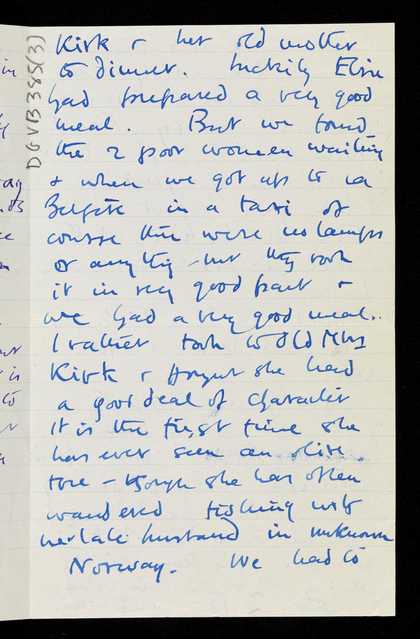 DGVB395(3)
Kirk & her old mother
to dinner. Luckily Elsie
had prepared a very good
meal. But we found
the 2 poor women waiting
& when we got up to
in a taxi of
course there were no lamps
or anything - but they took
it in very good part &
we had a very good meal.
I rather took to old Mrs
Kirk & thought she had
a good deal of character
It is the first time she
has ever seen an olive
tree - though she has often
wandered fishing with
her late husband in unknown
Norway. We had to